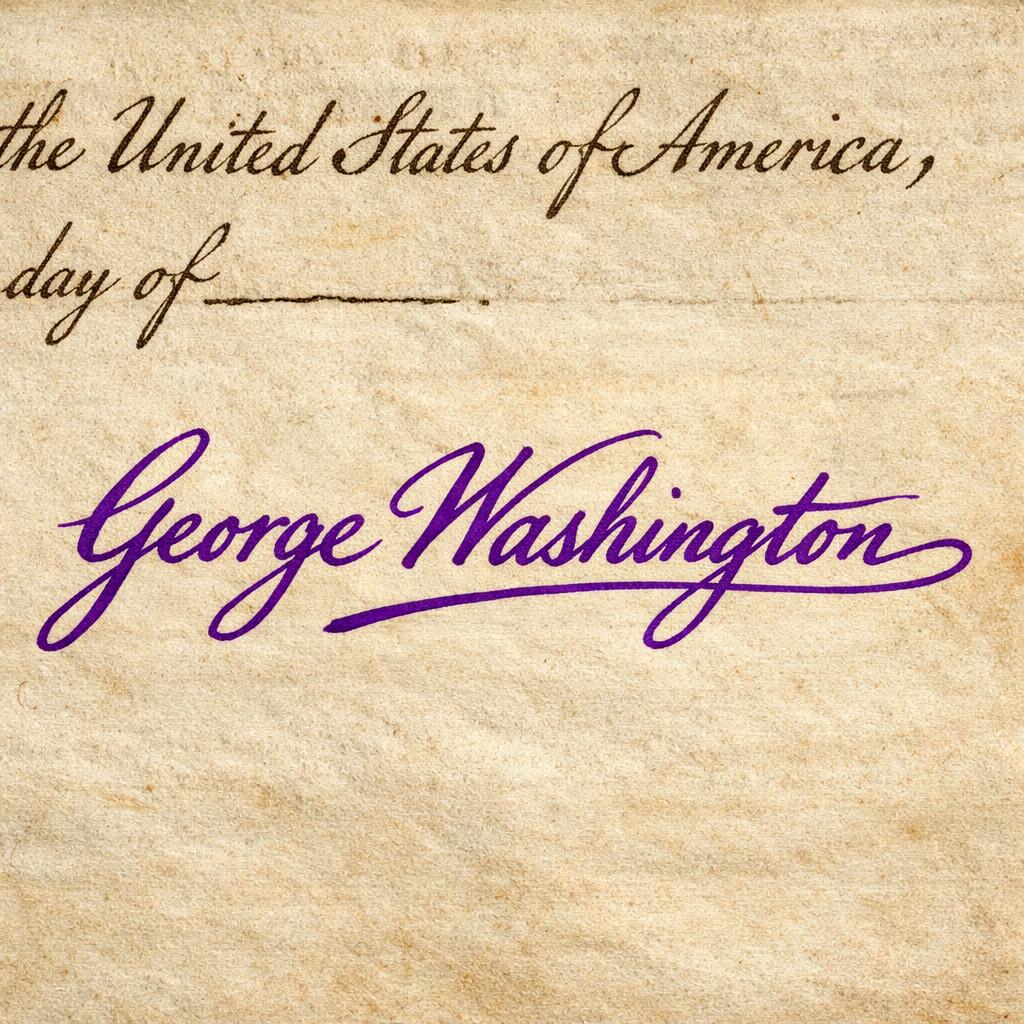 the United States of America,
day of ________.
George Washington